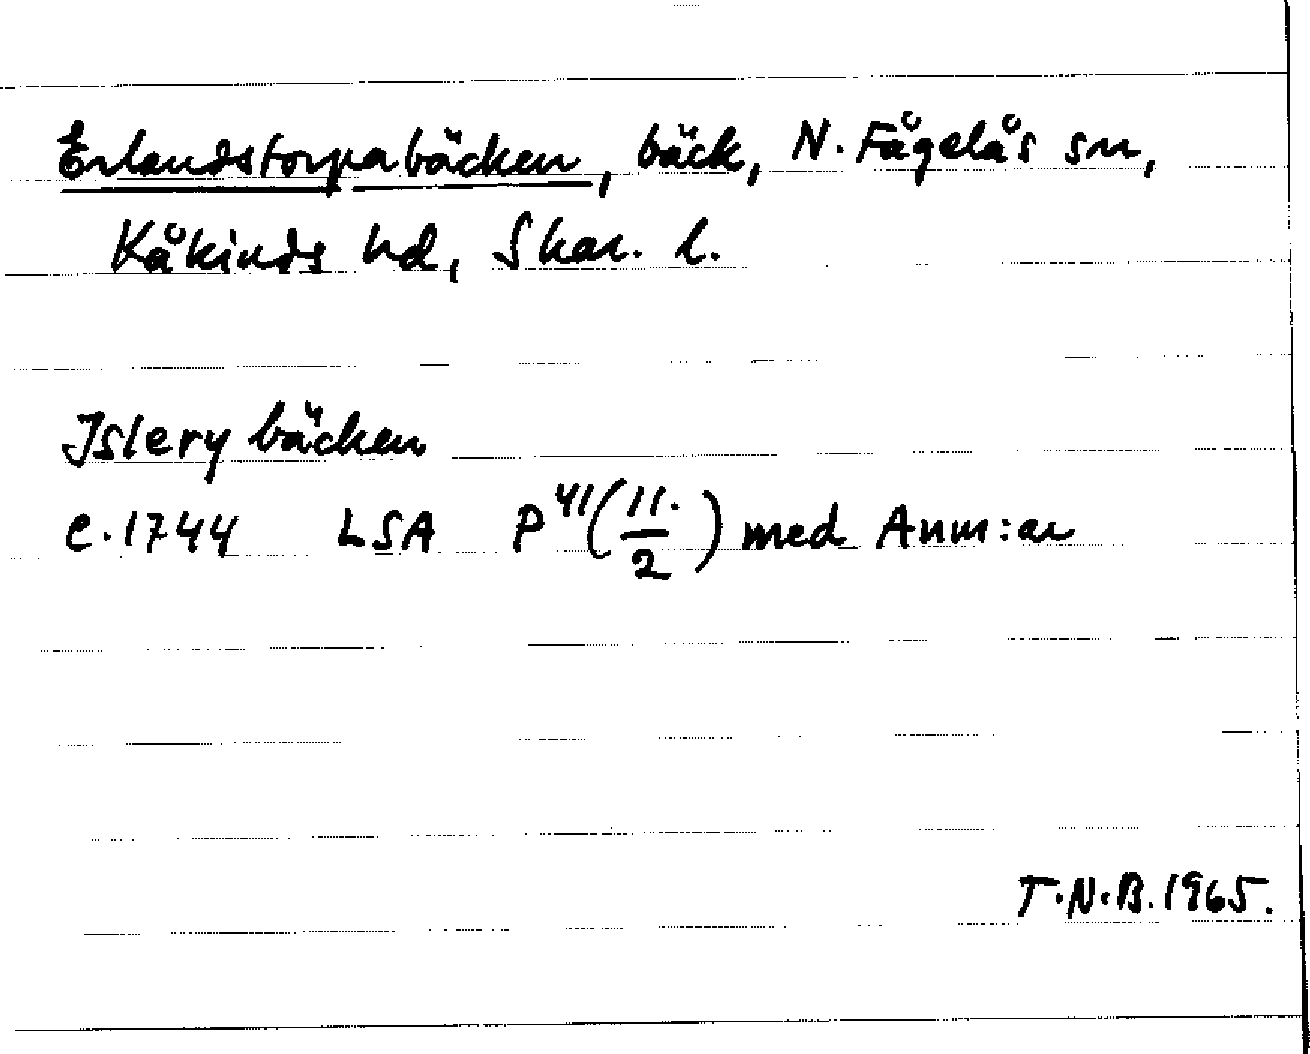 Erlandstorpabäcken, bäck, N. Fågelås sn,
Kåkinds hd, Skar. l.
Islery bäcken
c. 1744 LSA P⁴¹(11./2) med Anm:ar
T.N.B. 1965.